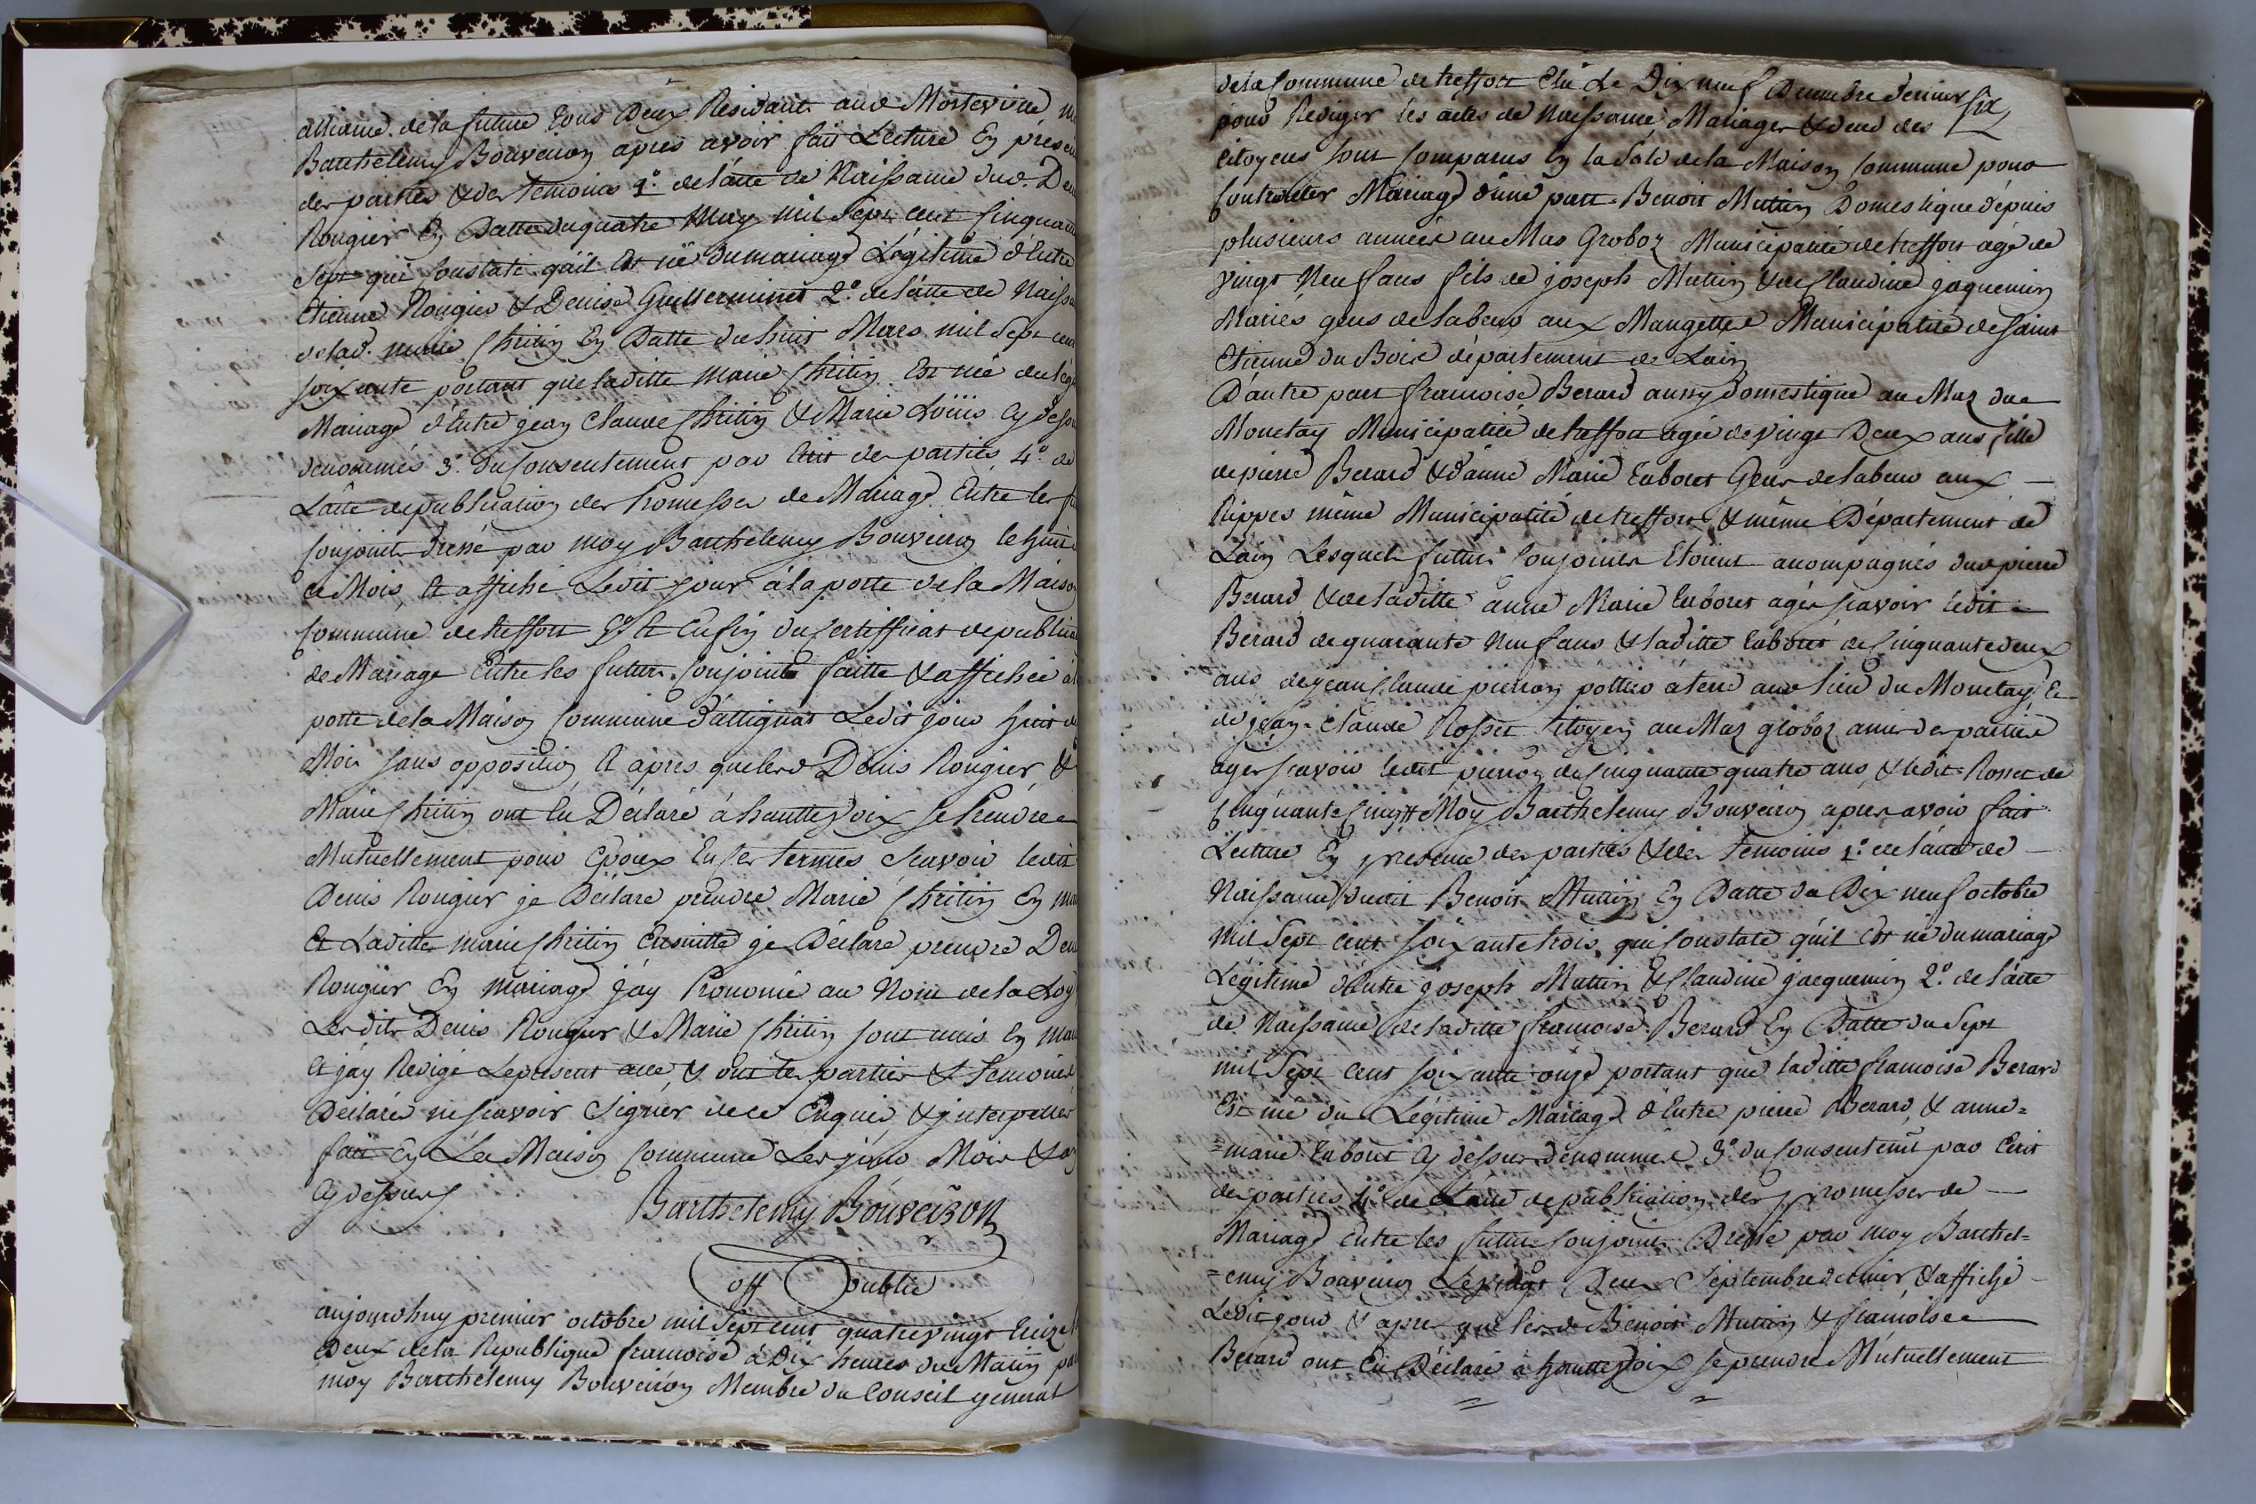 alliamé de la future tous Deux Residant aud Monteviné
Barthelemy Bouveiron apres avoir fait Lecture En présen
des parties & des temoins 1º de l'acte de Naissance dud. Den
Rougier En Datte du quatre May mil Sept cent Cinquan
Sept qui Constate qu'il Est né du mariage Légitime d'Entre
Etienne Rougier & Denise Guillerminet 2º de l'acte de Naissa
de lad. marie Chritin En Datte du huit Mars mil Sept cent
soixante portant que laditte Marie Chritin Est née du lég
Mariage d'Entre jean Claude Chritin & Marie Loüis Cy dessu
denommés 3º du Consentement par Ecrit des parties 4º de
L'acte de publication des Promesses de Mariage Entre les fu
Conjoints dressé par moy Barthelemy Bouveiron le huit
ce Mois, Et affiché Ledit jour à la porte de la Maison
Commune de treffort 5º Et Enfin du Certifficat de publica
de Mariage Entre les futurs Conjoints faitte & affichée à la
porte de la Maison Commune d'attignat Ledit jour huit du
Mois sans opposition Et apres que lesd Denis Rougier &
Marie Chritin ont Eu Déclaré à hautte Voix se Prendre
Mutuellement pour Epoux En ces termes Scavoir ledit
Denis Rougier je Déclare prendre Marie Chritin En ma
Et Laditte marie Chritin Ensuitte je Déclare prendre Den
Rougier En Mariage j'ay Prononcé au Nom de la Loy
Lesdits Denis Rougier & Marie Chritin sont unis En Mar
Et j'ay Redigé Le present acte, & ont les parties & temoins
Déclaré ne scavoir Signer de ce Enquis & jnterpellés
fait En La Maison Commune Les jour Mois & an
Cy dessus
Barthelemy Bouveiron
off Public
aujourd'huy premier octobre mil Sept cent quatre vingt treize
Deux de la Republique francoise à Dix heures du Matin par
moy Barthelemy Bouveiron Membre du Conseil general
six
de la Commune de treffort Elu Le Dix neuf Decembre dernier
pour Rediger les actes de Naissance, Mariages & deces des
Citoyens sont Comparus En la Sale de la Maison Commune pour
Contracter Mariage d'une part Benoit Muttin Domestique depuis
plusieurs années au Mas Groboz Municipalité de treffort agé de
vingt Neuf ans fils de joseph Muttin & de Claudine jaquemin
Mariés gens de labeur aux Mangettes Municipalité de Saint
Etienne du Bois département de Lain
D'autre part francoise Berard aussy domestique au Mas du
Monetay Municipalité de treffort agée de vingt Deux ans fille
de pierre Berard & d'anne Marie Enboret Gens de labeur aux
Rippes même Municipalité de treffort & même Département de
Lain Lesquels futurs Conjoints Etoient acompagnés dud pierre
Berard & de laditte anne Marie Enboret agés scavoir ledit
Berard de quarante Neuf ans & laditte Enboret de Cinquante deux
ans de jean Claude pierron pottier à terre aud lieu du Monetay, &
de jean Claude Rosset Citoyen au Mas groboz amis des parties
agés scavoir ledit pierron de Cinquante quatre ans, & ledit Rosset de
Cinquante Cinq Moy Barthelemy Bouveiron apres avoir fait
Lecture En presence des parties & des temoins 1º de l'acte de
Naissance dudit Benoit Muttin En Datte du Dix neuf octobre
mil Sept cent soixante trois, qui Constate qu'il Est né du mariage
Légitime d'Entre joseph Muttin & Claudine jacquemin 2º de l'acte
de Naissance de laditte francoise Berard En Datte du Sept
mil Sept cent soixante onze portant que laditte francoise Berard
Est née du Légitime Mariage d'Entre pierre Berard & anne=
=marie Enboret Cy dessus dénommés 3º du Consentemt par Ecrit
des parties 4º de L'acte de publication des promesses de
Mariage Entre les futurs Conjoints Dressé par moy Barthel=
=emy Bouveiron Le vingt Deux Septembre dernier & affiché
Ledit jour & apres que lesd Benoit Muttin & francoise
Berard ont Eu Déclaré à hautte Voix se prendre Mutuellement